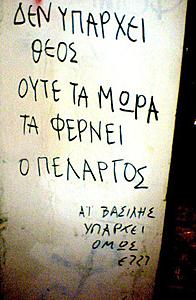 ΔΕΝ ΥΠΑΡΧΕΙ
ΘΕΟΣ
ΟΥΤΕ ΤΑ ΜΩΡΑ
ΤΑ ΦΕΡΝΕΙ
Ο ΠΕΛΑΡΓΟΣ
ΑΓ ΒΑΣΙΛΗΣ
ΥΠΑΡΧΕΙ
ΟΜΩΣ